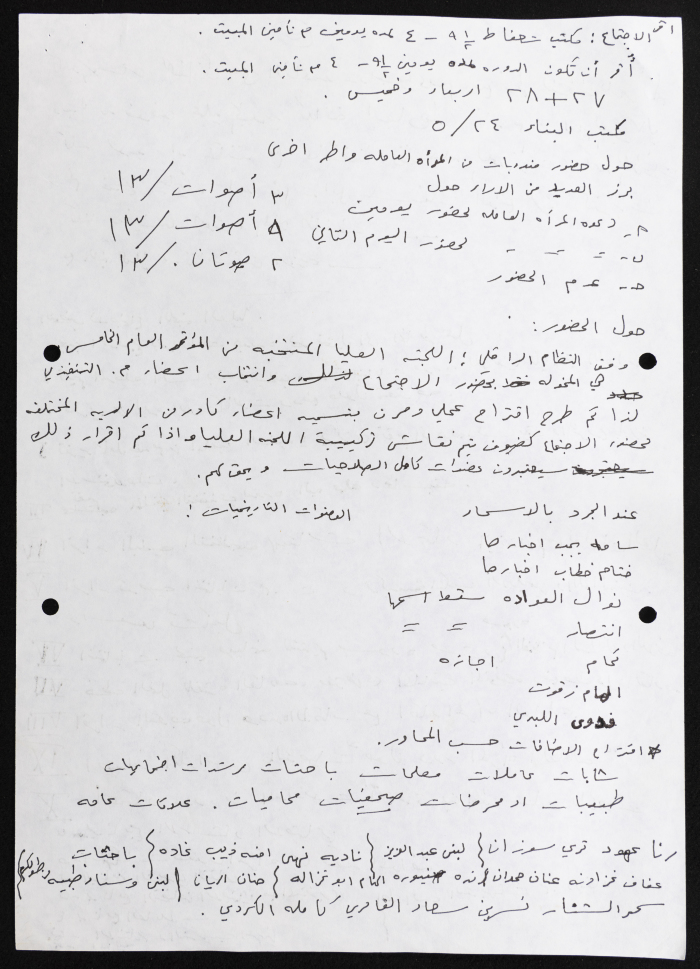 الاجتماع : مكتب شعفاط ٩١/٢ - ٤ لمدة يومين مع تأمين المبيت .
أقر أن تكون الدورة لمدة يومين ٩١/٢ - ٤ مع تأمين المبيت .
٢٧ + ٢٨ اربعاء وخميس .
مكتب البناء ٥/٢٤
حول حضور مندوبات من المرأة العاملة واطر اخرى
برز العديد من الاراء حول
أ- دعوة المرأة العاملة لحضور يومين ٣ أصوات /١٣
ب- = = - لحضور اليوم الثاني ٨ أصوات /١٣
ج- عدم الحضور ٢ صوتان ./١٣
حول الحضور :
وفق النظام الداخلي : اللجنة العليا المنتخبة من المؤتمر العام الخامس
هي المخولة بحضور الاجتماع وانتخاب اعضاء م. التنفيذي
لذا تم طرح اقتراح عملي ومرن بتسمية اعضاء كادر من الالوية المختلفة
لحضور الاجتماع كضيوف يتم نقاش تركيبة اللجنة العليا واذا تم اقرار ذلك
سيعتبرون عضوات كامل الصلاحيات ويحق لهم.
عند الجرد بالاسماء العضوات التاريخيات !
سامه يجب اخبارها
ختام خطاب اخبارها
نوال العواده سقط اسمها
انتصار = =
كحام اجازه
الهام زقوت
فدوى اللبدي
* اقتراح الاضافات حسب المحاور.
شابات عاملات معلمات باحثات مرشدات اجتماعيات
طبيبات او ممرضات صحفيات محاميات . علاقات عامه
رنا عهود تري سوزان { لبنى عبد العزيز { ناديه نهى امنه ذيب غاده { باحثات
عفاف غزاونه عنان حمدان رنده الهام ابو غزاله { حنان الريان { لبنى وسناء طبيه
سحر الشنار نسرين سعاد القادري كامله الكردي .